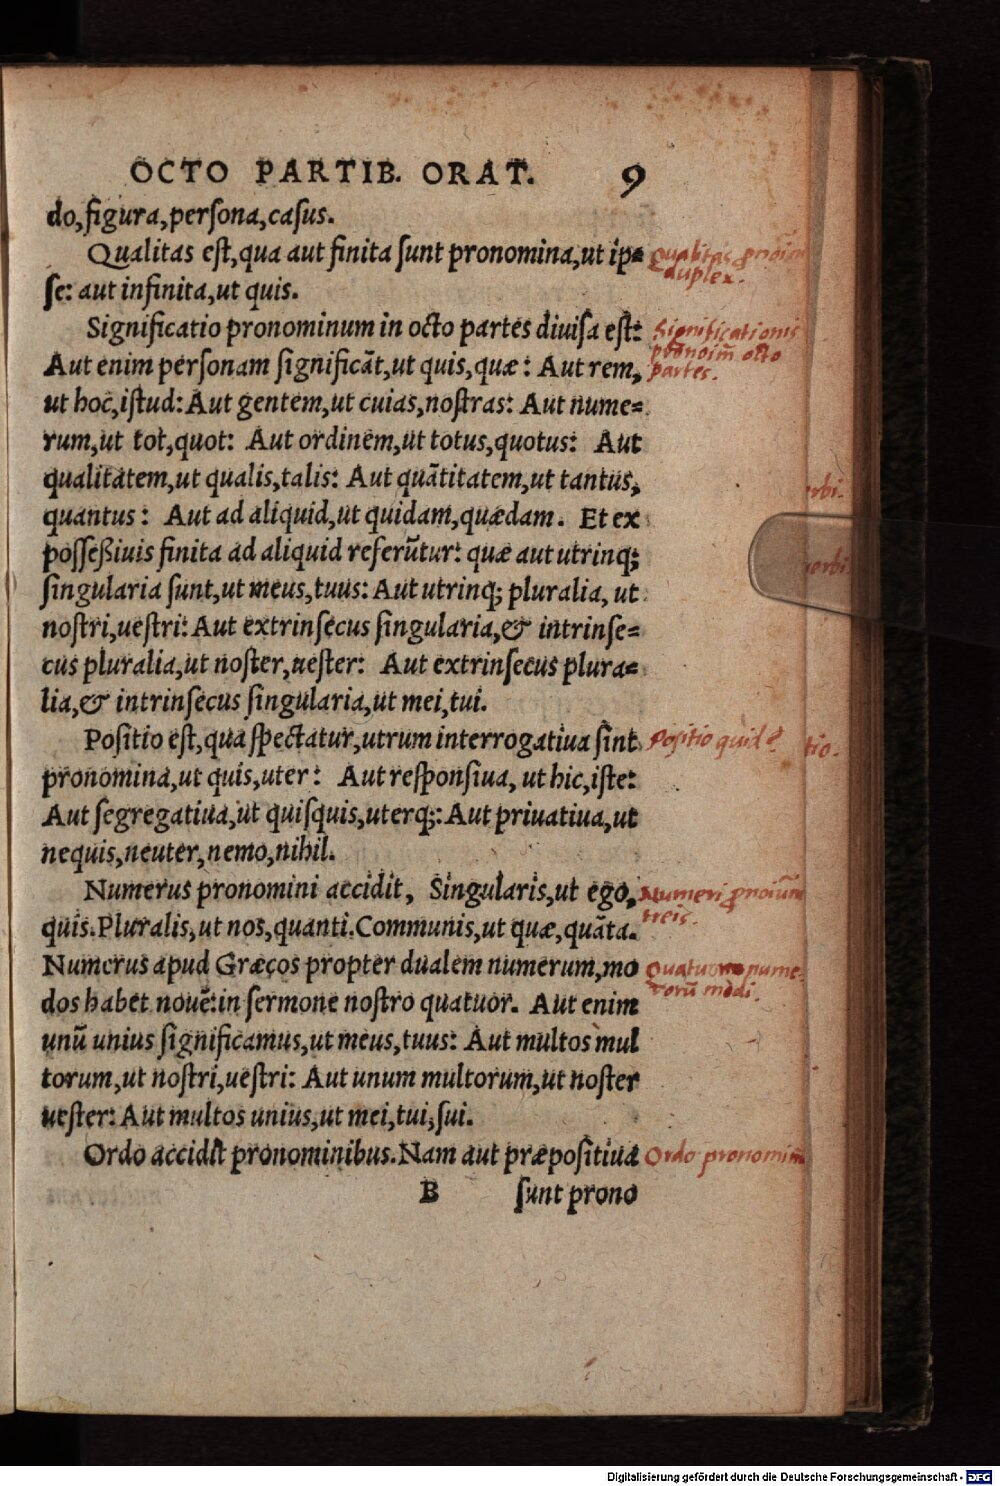 OCTO PARTIB. ORAT. 9
do, figura, persona, casus.
Qualitas est, qua aut finita sunt pronomina, ut ip=
se: aut infinita, ut quis.
Significatio pronominum in octo partes diuisa est:
Aut enim personam significãt, ut quis, quæ: Aut rem,
ut hoc, istud: Aut gentem, ut cuias, nostras: Aut nume=
rum, ut tot, quot: Aut ordinem, ut totus, quotus: Aut
qualitatem, ut qualis, talis: Aut quãtitatem, ut tantus,
quantus: Aut ad aliquid, ut quidam, quædam. Et ex
posseßiuis finita ad aliquid referũtur: quæ aut utrinq;
singularia sunt, ut meus, tuus: Aut utrinq; pluralia, ut
nostri, uestri: Aut extrinsecus singularia, & intrinse=
cus pluralia, ut noster, uester: Aut extrinsecus plura=
lia, & intrinsecus singularia, ut mei, tui.
Positio est, qua spectatur, utrum interrogatiua sint
pronomina, ut quis, uter: Aut responsiua, ut hic, iste:
Aut segregatiua, ut quisquis, uterq;: Aut priuatiua, ut
nequis, neuter, nemo, nihil.
Numerus pronomini accidit, Singularis, ut ego,
quis. Pluralis, ut nos, quanti. Communis, ut quæ, quãta.
Numerus apud Græcos propter dualem numerum, mo
dos habet nouẽ: in sermone nostro quatuor. Aut enim
unũ unius significamus, ut meus, tuus: Aut multos mul
torum, ut nostri, uestri: Aut unum multorum, ut noster
uester: Aut multos unius, ut mei, tui, sui.
Ordo accidit pronominibus. Nam aut præpositiua
B sunt prono
Qualitas
duplex.
Significationis
octo
partes.
Positio quid?
Numeri
treis.
Quatuor nume-
rorũ modi.
Ordo
Digitalisierung gefördert durch die Deutsche Forschungsgemeinschaft - DFG